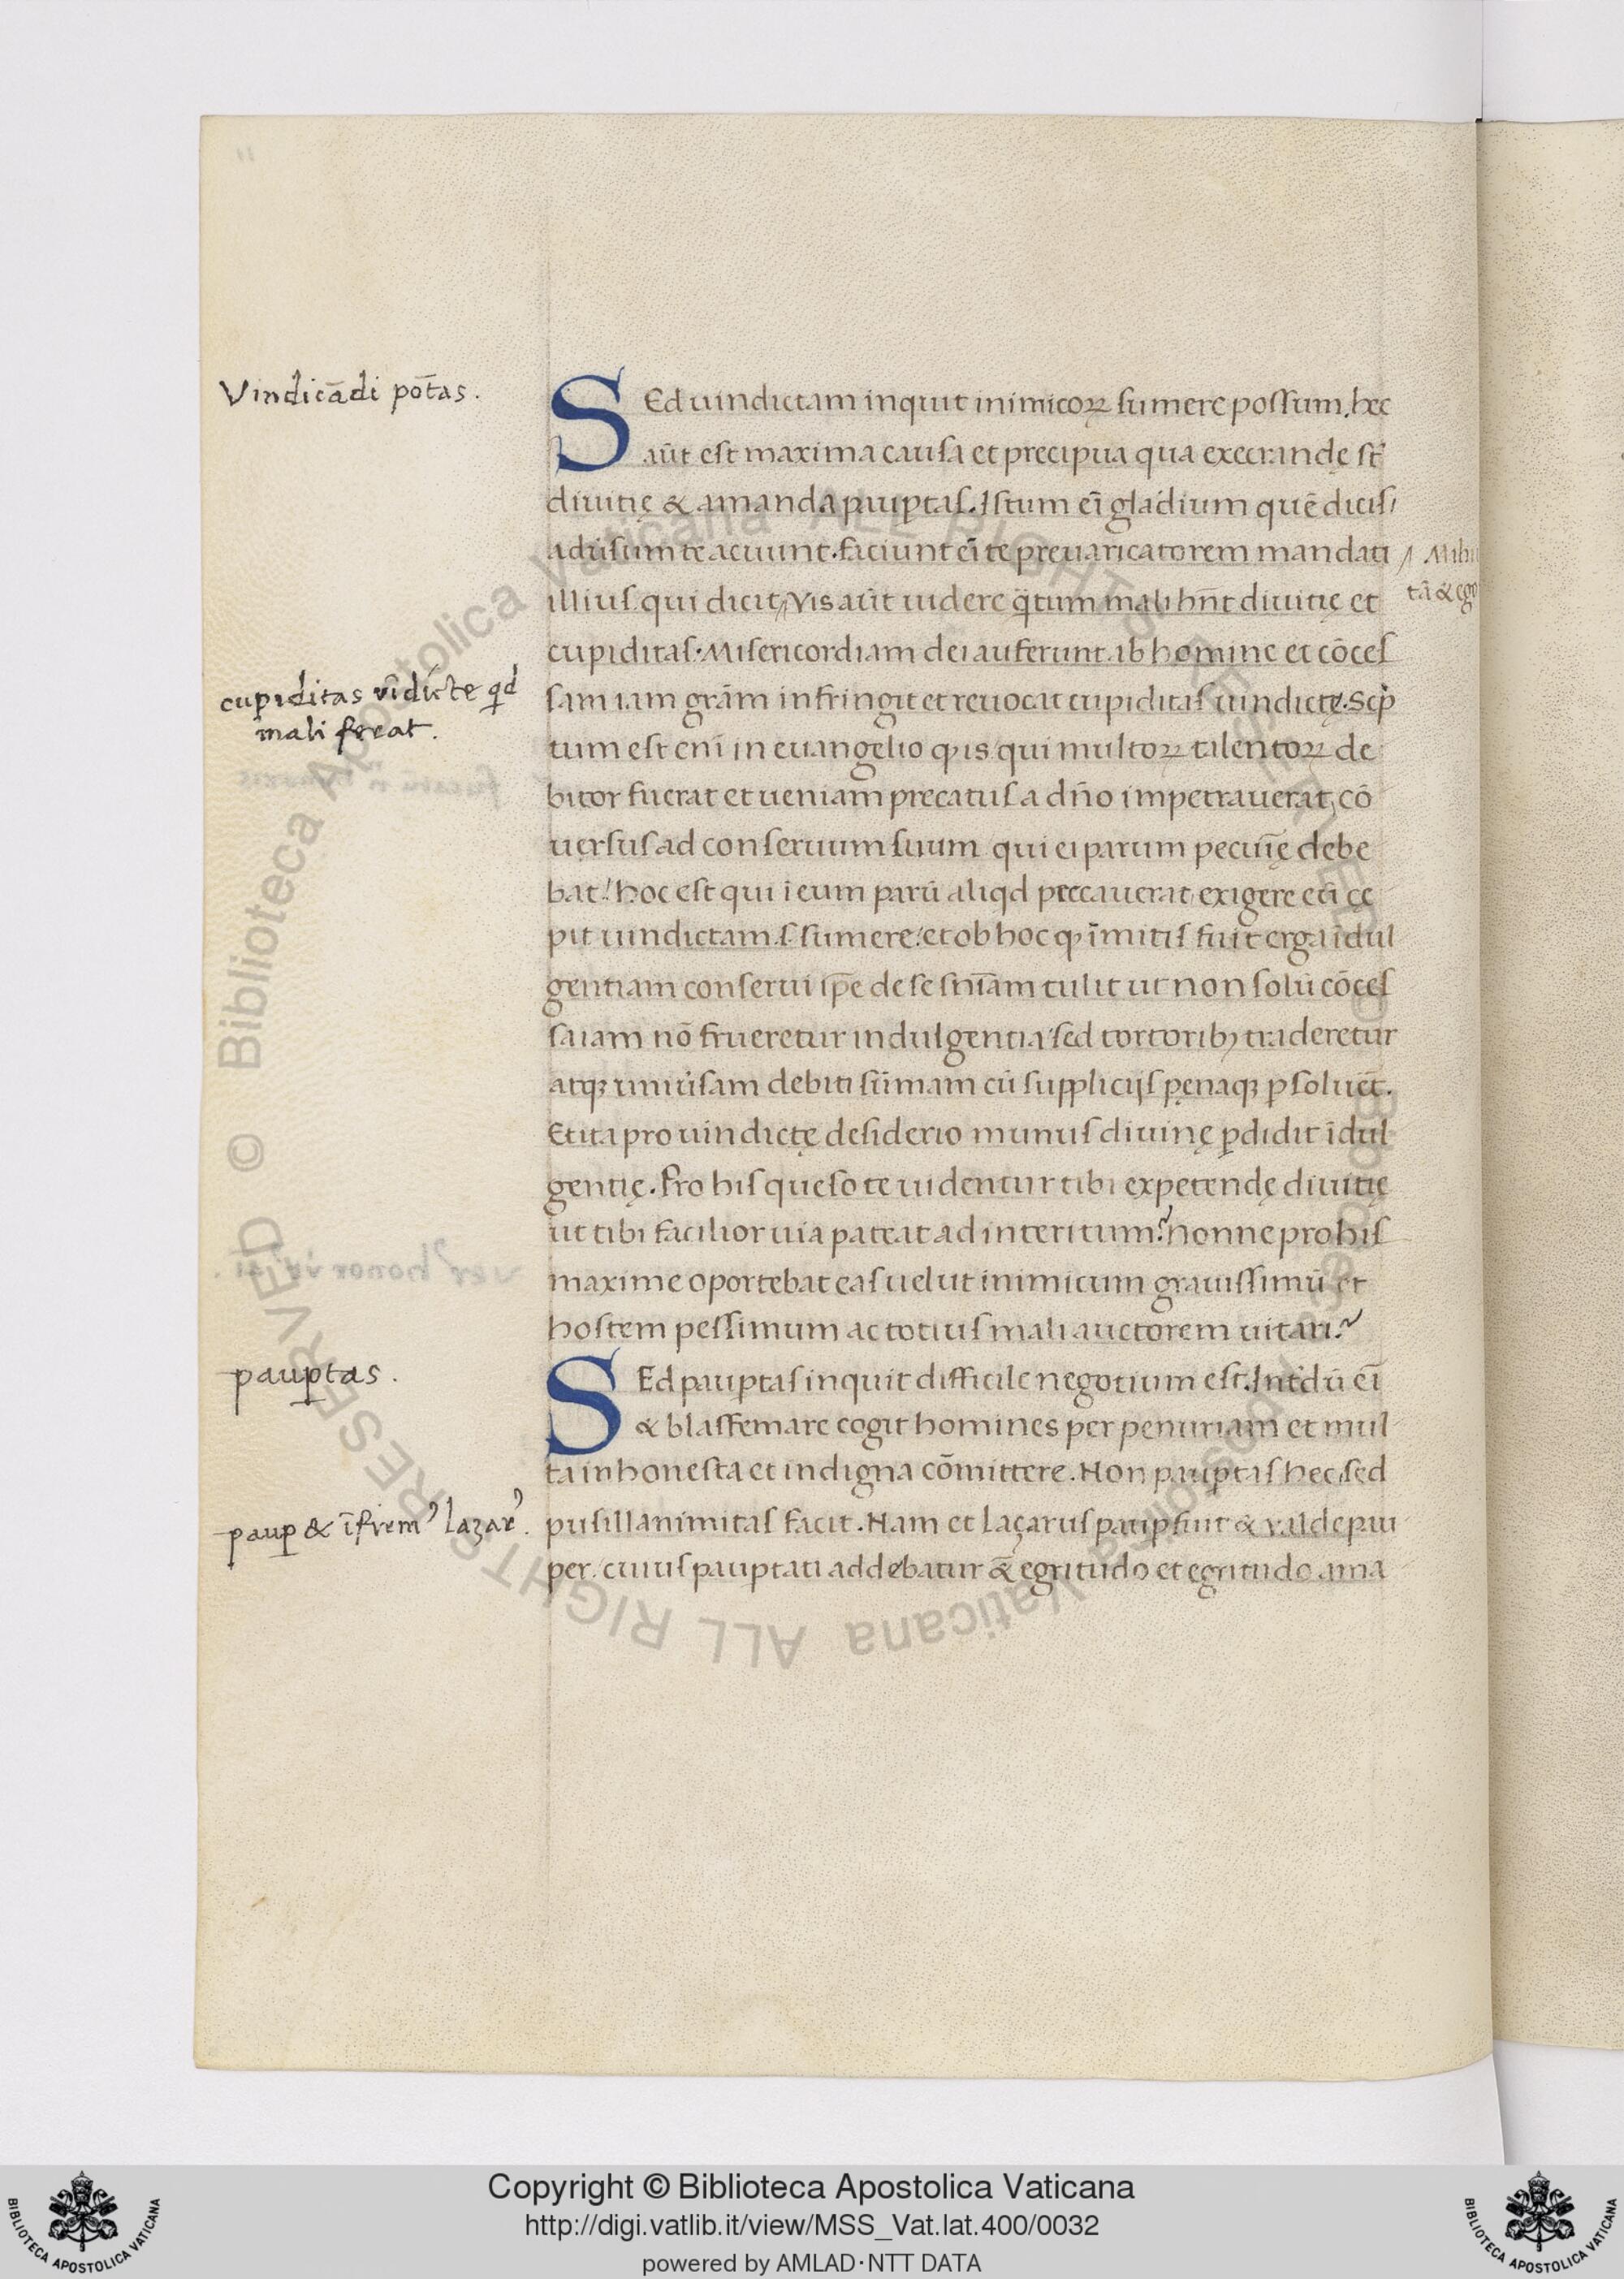 Vindicādi pot̄as.
SEd uindictam inquit inimicoꝝ sumere possum. hec
aūt est maxima causa et precipua qua execrandę st̄
diuitię & amanda paupꝑtas. Istum ei̅ gladium quē dicis
adūsum te acuunt. faciunt ei̅ te preuaricatorem mandati
illius qui dicit, Vis aūt uidere qᷓtum mali hn̄t diuitię et
cupiditas. Misericordiam dei auferunt ab homine et cōces
cupiditas vīdicte qd
mali fecat.
sam iam grām infringit et reuocat cupiditas uindictę. Scp̄
tum est eni̅ in euangelio ꝙ is qui multoꝝ talentoꝝ de
bitor fuerat et ueniam precatus a dn̄o impetrauerat, cō
uersus ad conseruum suum qui ei parum pecuīę debe
bat: hoc est qui ī eum parū aliqd peccauerat exigere etī cę
pit uindictam. s. sumere. et ob hoc ꝙ īmitis fuit erga īdul
gentiam conserui ip̄e de se sn̄iam tulit ut non solū cōces
sa iam nō frueretur indulgentia sed tortoribꝫ traderetur
atqꝫ uniūsam debiti sūmam cū supplicijs pęnaqꝫ ꝑsolueret.
Et ita pro uindictę desiderio munus diuinę ꝑdidit īdul
gentię. Pro his queso te uidentur tibi expetendę diuitię
ut tibi facilior uia pateat ad interitum? nonne pro his
maxime oportebat eas uelut inimicum grauissimū et
hostem pessimum ac totius mali auctorem uitari?
pauꝑtas.
SEd pauꝑtas inquit difficile negotium est. Intdū ei̅
& blasfemare cogit homines per penuriam et mul
ta inhonesta et indigna cōmittere. Non pauꝑtas hec sed
pauꝑ & īfirmꝰ lazarꝰ.
pusillanimitas facit. Nam et laçarus pauꝑ fuit & ualde pau
per. cuius pauꝑtati addebatur & egritudo et egritudo ama
Copyright © Biblioteca Apostolica Vaticana
http://digi.vatlib.it/view/MSS_Vat.lat.400/0032
powered by AMLAD·NTT DATA
BIBLIOTECA APOSTOLICA VATICANA
BIBLIOTECA APOSTOLICA VATICANA